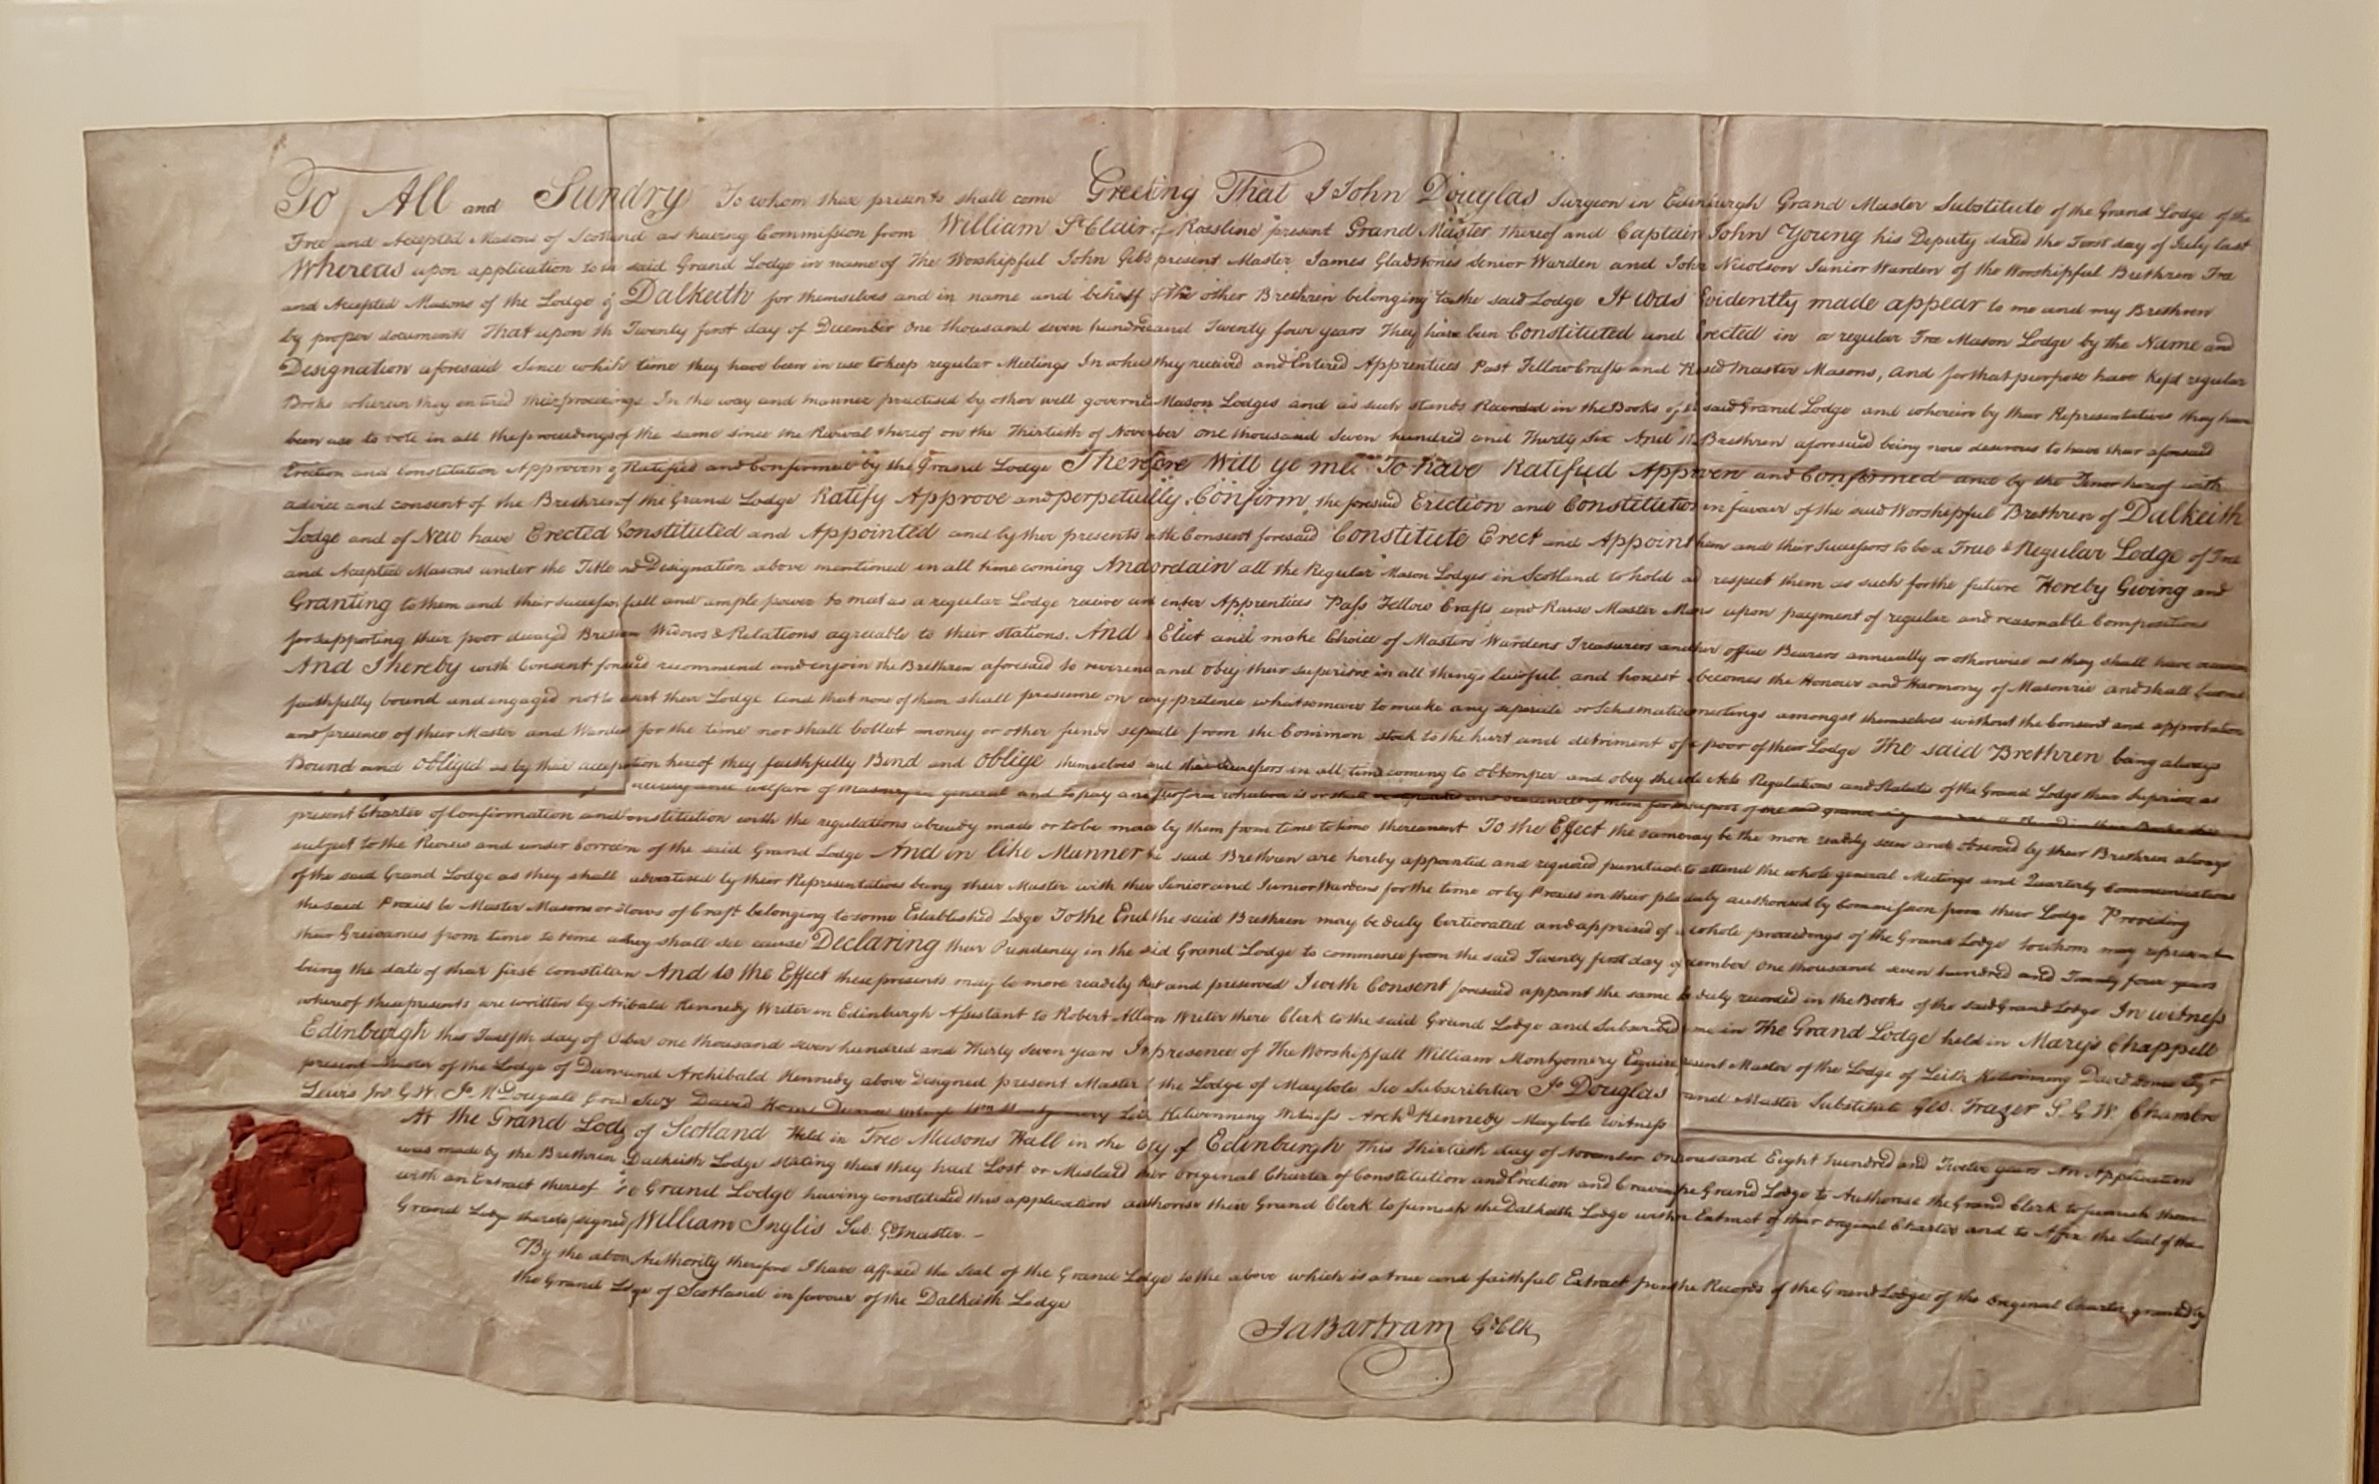 To All and Sundry To whom these presents shall come Greeting That I John Douglas Surgeon in Edinburgh Grand Master Substitute of the Grand Lodge of the
Free and Accepted Masons of Scotland as having Commission from William St Clair of Rossline present Grand Master thereof and Captain John Young his Deputy dated the first day of July last
Whereas upon application to said Grand Lodge in name of The Worshipful John Gibb present Master James Gladstones Senior Warden and John Nicolson Junior Warden of the Worshipful Brethren Free
and Accepted Masons of the Lodge of Dalkeith for themselves and in name and behalf of the other Brethren belonging to the said Lodge It was Evidently made appear to me and my Brethren
by proper documents That upon the Twenty first day of December one thousand seven hundred and Twenty four years They have been Constituted and Erected in a regular Free Mason Lodge by the Name and
Designation aforesaid Since which time they have been in use to keep regular Meetings In which they received and Entered Apprentices Past Fellow Crafts and Raised Master Masons, And for that purpose have kept regular
Books wherein they entered their proceedings In the way and manner practised by other well governed Mason Lodges and as such stands Recorded in the Books of said Grand Lodge and wherein by their Representatives they have
been use to vote in all the proceedings of the same since the Revival thereof on the Thirtieth of November one thousand seven hundred and Thirty Six And Brethren aforesaid being now desirous to have their aforesaid
Erection and Constitution Approven of Ratified and Confirmed by the Grand Lodge Therefore Will ye me To have Ratified Approven and Confirmed and by the Tenor hereof with
advice and consent of the Brethren of the Grand Lodge Ratify Approve and perpetually Confirm the foresaid Erection and Constitution in favour of the said Worshipful Brethren of Dalkeith
Lodge and of New have Erected Constituted and Appointed and by these presents with Consent foresaid Constitute Erect and Appoint them and their Successors to be a True & Regular Lodge of Free
and Accepted Masons under the Title and Designation above mentioned in all time coming And ordain all the Regular Mason Lodges in Scotland to hold and respect them as such for the future Hereby Giving and
Granting to them and their successors full and ample power to meet as a regular Lodge receive and enter Apprentices Pass Fellow Crafts and Raise Master Masons upon payment of regular and reasonable Compositions
for supporting their poor decayed Brethren Widows & Relations agreeable to their stations. And Elect and make Choice of Masters Wardens Treasurers and other office Bearers annually or otherwise as they shall have occasion
And I hereby with Consent foresaid recommend and enjoin the Brethren aforesaid to reverence and obey their superiors in all things lawful and honest becomes the Honour and Harmony of Masonrie and shall become
faithfully bound and engaged not to desert their Lodge and that none of them shall presume on any pretence whatsomever to make any separate or Schismatical meetings amongst themselves without the Consent and approbation
and presence of their Master and Wardens for the time nor shall collect money or other funds separate from the Common stock to the hurt and detriment of poor of their Lodge The said Brethren being always
Bound and obliged as by their acceptation hereof they faithfully Bind and Oblige themselves and their Successors in all time coming to obtemper and obey the Acts Regulations and Statutes of the Grand Lodge their Superiors as
necessary and welfare of Masonry in general and to pay and perform whatever is or shall
present Charter of Confirmation and Constitution with the regulations already made or to be made by them from time to time thereanent To the Effect the same may be the more readily seen and observed by their Brethren always
subject to the Review and under Correction of the said Grand Lodge And in like Manner said Brethren are hereby appointed and required punctual to attend the whole general Meetings and Quarterly Communications
of the said Grand Lodge as they shall advertised by their Representatives being their Master with their Senior and Junior Wardens for the time or by Proxies in their place duly authorised by Commission from their Lodge Providing
the said Proxies be Master Masons or Fellows of Craft belonging to some Established Lodge To the End the said Brethren may be duly Certiorated and apprised of whole proceedings of the Grand Lodge to whom may represent
their Greivances from time to time as they shall see cause Declaring their Precedency in the said Grand Lodge to commence from the said Twenty first day of December one thousand seven hundred and Twenty four years
being the date of their first constitution And to the Effect these presents may be more readily kept and preserved I with Consent foresaid appoint the same to be duly recorded in the Books of the said Grand Lodge In witness
whereof these presents are written by Archibald Kennedy Writer in Edinburgh Assistant to Robert Allison Writer there Clerk to the said Grand Lodge and Subscribed me in The Grand Lodge held in Marys Chappell
Edinburgh this Twelfth day of one thousand seven hundred and Thirty seven years In presence of The Worshipfull William Montgomery Esquire present Master of the Lodge of Leith Kelwinning David
present Master of the Lodge of Archibald Kennedy above Designed present Master of the Lodge of Maybole Sic Subscribitur Jo Douglas Grand Master Substitute Geo. Frazer S. G. W. Chambre
Lewis Jnr G. W. Jo McDougale Grand Secy David Home witness Wm Montgomery Leith Kelwinning Witness Archd Kennedy Maybole witness
At the Grand Lodge of Scotland Held in Free Masons Hall in the City of Edinburgh This Thirtieth day of November one thousand Eight hundred and Twelve years An Application
was made by the Brethren Dalkeith Lodge stating that they had Lost or Mislaid their Original Charter of Constitution and Erection and Craving the Grand Lodge to Authorise the Grand Clerk to furnish them
with an Extract thereof The Grand Lodge having constituted this application authorise their Grand Clerk to furnish the Dalkeith Lodge with an Extract of their original Charter and to Affix the Seal of the
Grand Lodge thereto (signed) William Inglis Sub. Gd Master.
By the above Authority therefore I have affixed the Seal of the Grand Lodge to the above which is a true and faithful Extract from the Records of the Grand Lodge of the original Charter granted by
the Grand Lodge of Scotland in favour of the Dalkeith Lodge
Ja Bartram Gd Clk